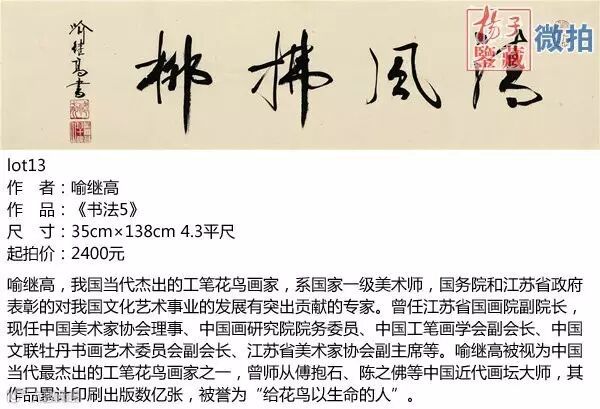 清風拂柳
喻继高書
扬子
鉴藏
微拍
lot13
作 者：喻继高
作 品：《书法5》
尺 寸：35cm×138cm 4.3平尺
起拍价：2400元
喻继高，我国当代杰出的工笔花鸟画家，系国家一级美术师，国务院和江苏省政府
表彰的对我国文化艺术事业的发展有突出贡献的专家。曾任江苏省国画院副院长，
现任中国美术家协会理事、中国画研究院院务委员、中国工笔画学会副会长、中国
文联牡丹书画艺术委员会副会长、江苏省美术家协会副主席等。喻继高被视为中国
当代最杰出的工笔花鸟画家之一，曾师从傅抱石、陈之佛等中国近代画坛大师，其
作品累计印刷出版数亿张，被誉为“给花鸟以生命的人”。